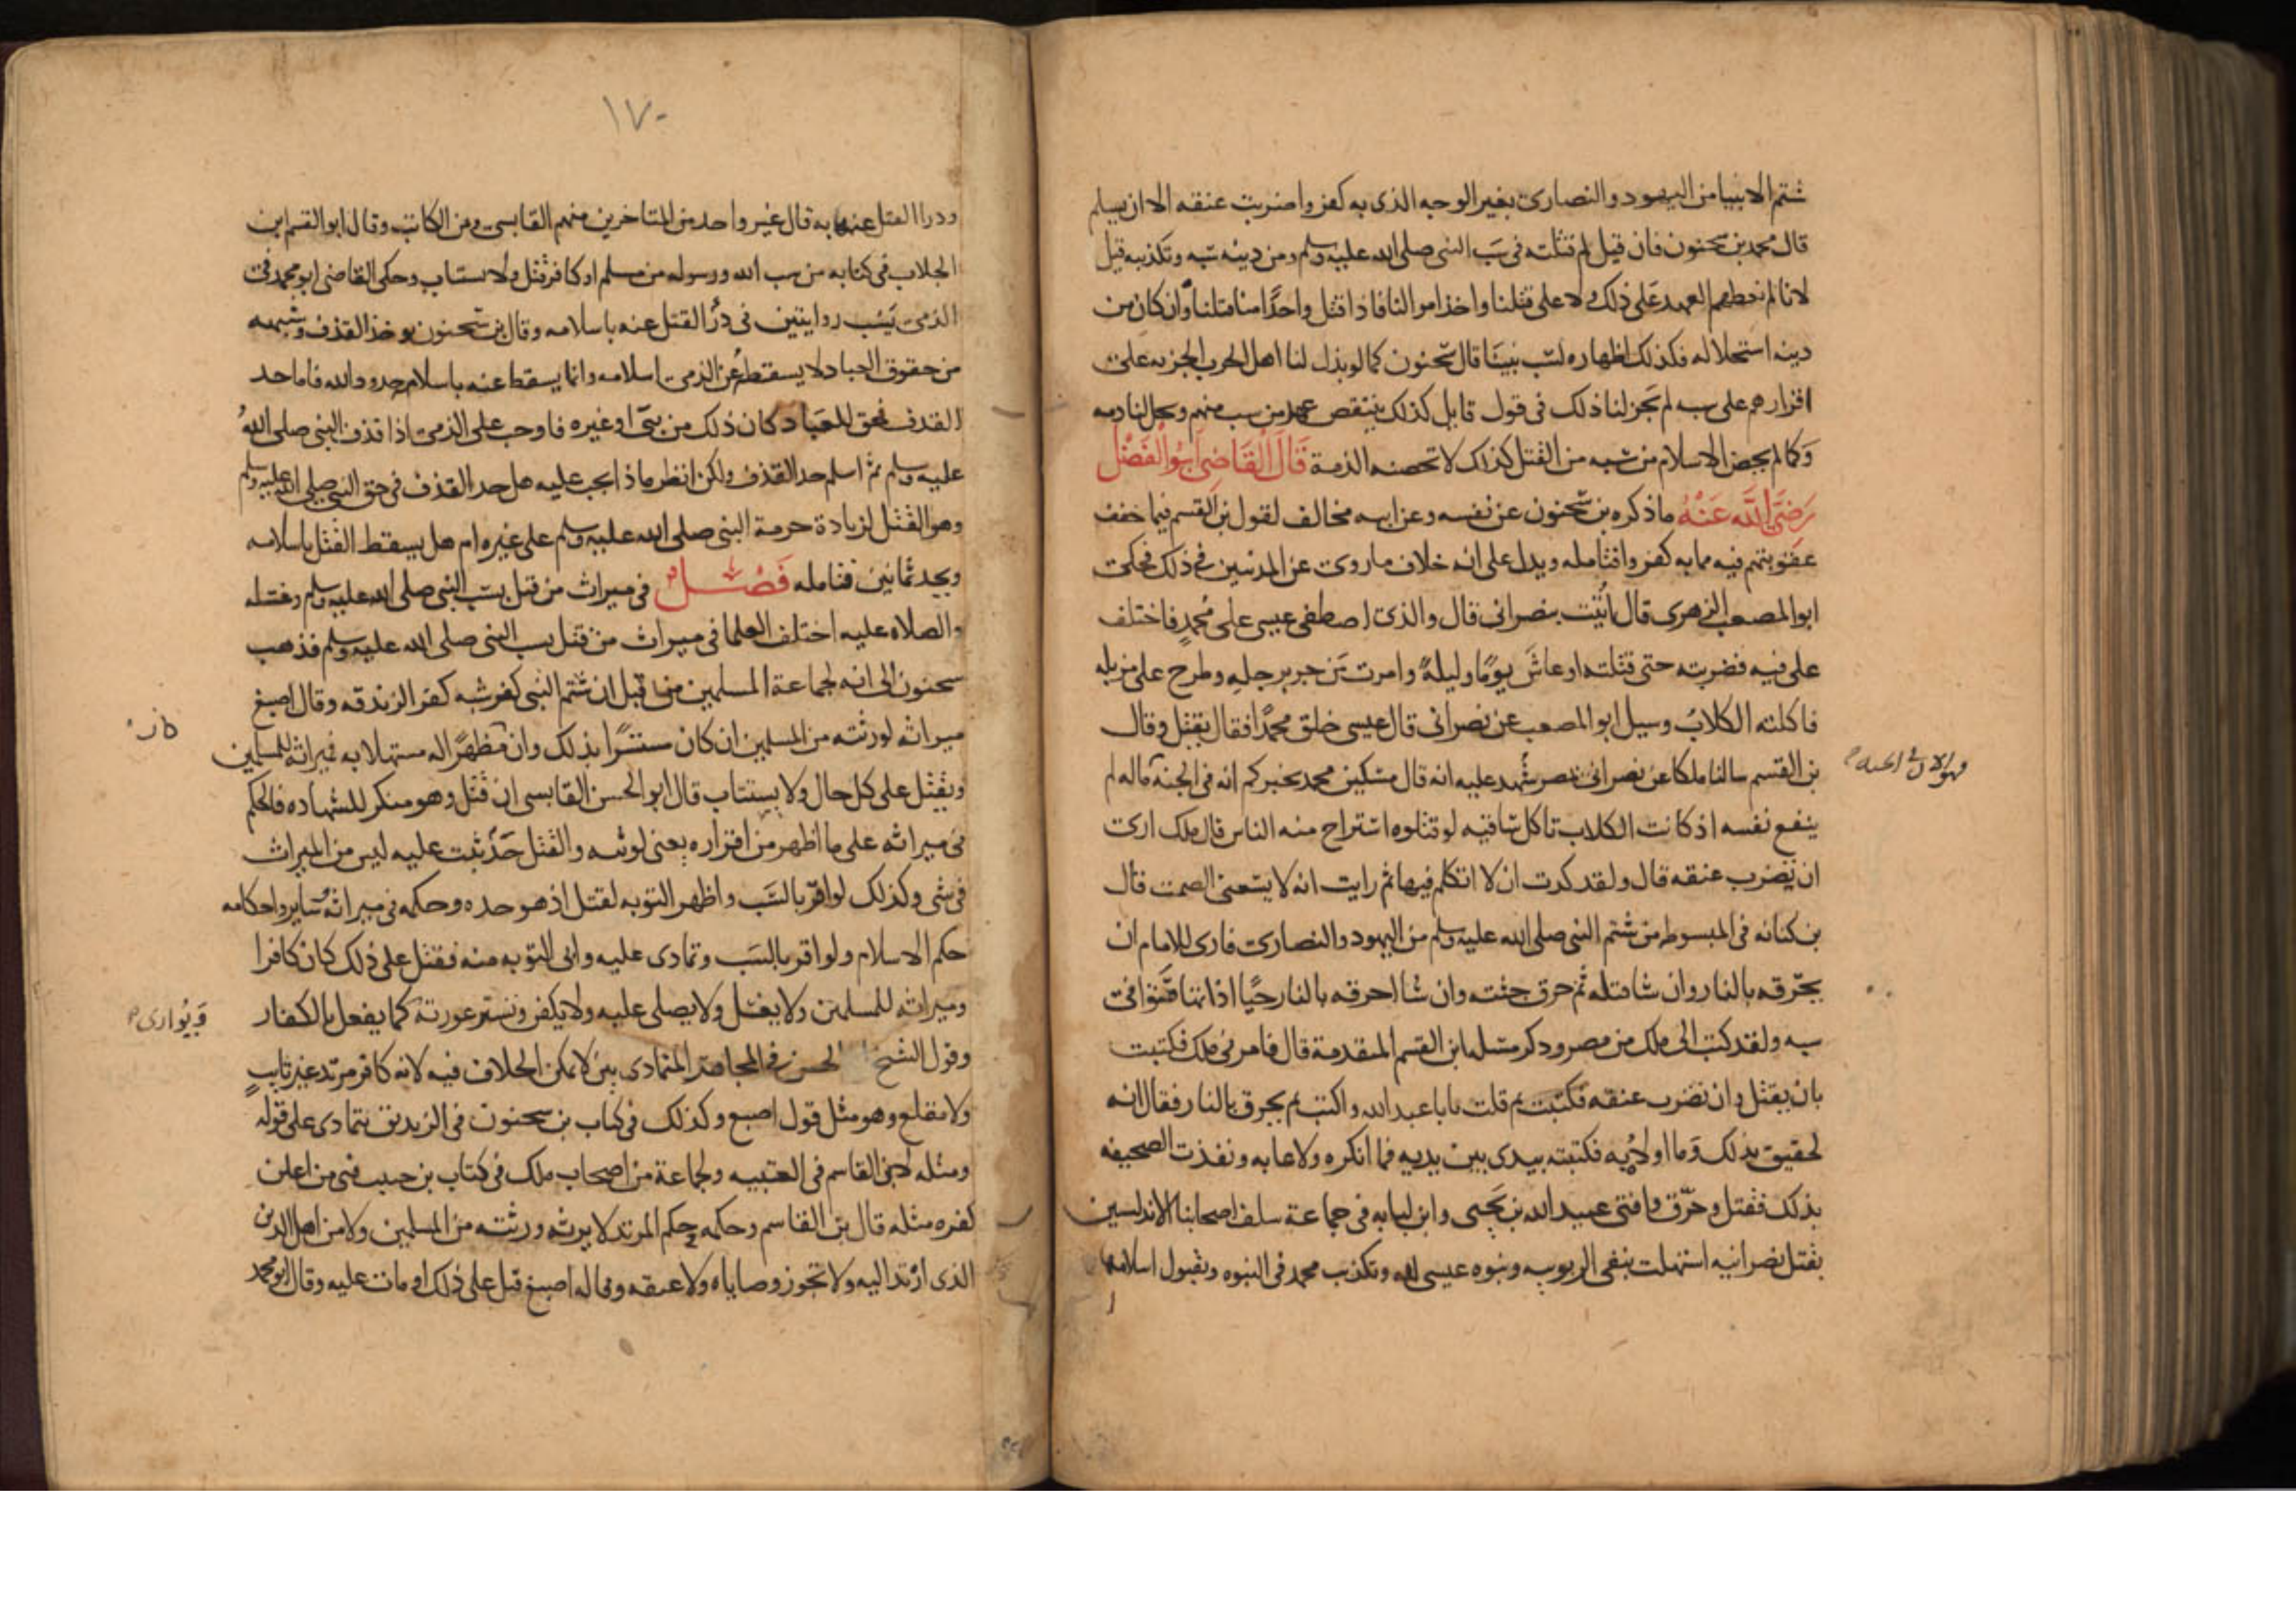 شتم الانبيا من اليهود والنصارى بغير الوجه الذى به كفروا ضربت عنقه الا ان يسلم
قال محمد بن سحنون فان قيل لم قتلته فى سَب النبى صلى الله عليه وسلم ومن دينه سَبه وتكذيبه قيل
لانا لم نعطهم العهد على ذلك ولا على قتلنا واخذ اموالنا فاذا قتل واحدًا منا قتلناه وان كان من
دينه استحلاله فكذلك اظهاره لسَب نبينا قال سحنون كما لو بذل لنا اهل الحرب الجزيه على
اقرارهم على سبه لم يَجز لنا ذلك فى قول قايل كذلك ينتقض عهد من سب منهم ويحل لنا دمه
وَكما لم يحصن الاسلام من سبه من القتل كذلك لا تحصنه الذمة قَالَ القَاضِى ابُوالفَضْل
رَضِىَ اللَّه عَنْهُ ماذكره بن سحنون عن نفسه وعن ابيه مخالف لقول بن القسم فيما خفف
عقوبتهم فيه مما به كفروا فتامله ويدل على انه خلاف ما روى عن المدنيين فى ذلك فحكى
ابوالمصعب الزهرى قال اُتيت بنصرانى قال والذى اصطفى عيسى على محمدٍ فاختلف
على فيه فضربته حتى قتلته او عاشَ يومًا وليلةً وامرت مَن جر برجلهِ وطرح على مزبله
فاكلته الكلابُ وسيل ابو المصعب عن نصرانى قال عيسى خلق محمدًا فقال يقتل وقال
بن القسم سالنا ملكا عن نصرانى بمصر شهد عليه انه قال مسكين محمد يخبركم انه فى الجنة ماله لم
فهو الان فى الجنه
ينفع نفسه اذ كانت الكلاب تاكل ساقيه لو قتلوه استراح منه الناس قال ملك ارى
ان يضرب عنقه قال ولقد كدت ان لا اتكلم فيها ثم رايت انه لا يسعنى الصمت قال
بن كنانه فى المبسوط من شتم النبى صلى الله عليه وسلم من اليهود والنصارى فارى للامام ان
يحّرقه بالنار وان شا قتله ثم حرق جثته وان شا احرقه بالنار حيًا اذا تهافتوا فى
سبه ولقد كتب الى ملك من مصر وذكر مسله ابن القسم المتقدمة قال فامرنى ملك فكتبت
بان يقتل وان تضرب عنقه فكتبت ثم قلت يابا عبد الله واكتب ثم يحرق بالنار فقال انه
لحقيق بذلك وَما اولاهُ به فكتبته بيدى بين يديه فما انكره ولا عابه ونفذت الصحيفه
بذلك فقتل وحرّق وافتى عبيد الله بن يحيى وابن لبابه فى جماعة سلف اصحابنا الاندلسين
بقتل نصرانيه استهلت بنفى الربوبيه ونبوه عيسى لله وتكذيب محمد فى النبوه وبقبول اسلامها
١٧٠
ودرا القتل عنها به قال غير واحد من المتاخرين منهم القابسى وبن الكاتب وقال ابوالقسم ابن
الجلاب فى كتابه من سب الله ورسوله من مسلم او كافر قتل ولا يستتاب وحكى القاضى ابو محمد فى
الذمى يَسُب روايتين فى درُ القتل عنه باسلامه وقال بن سحنون وحد القذف وشبهه
من حقوق العباد لا يسقطه عن الذمى اسلامه وانما يسقط عنه باسلامه حدود الله فاما حد
القذف فحق للعباد كان ذلك من نبىّ او غيره فاوجب على الذمى اذا قذف النبى صلى اللهُ
عليه وسلم ثم اسلم حد القذف ولكن انظر ماذا يجب عليه هل حد القذف فى حق النبى صلى الله عليه وسلم
وهو القتل لزيادة حرمة النبى صلى الله عليه وسلم على غيره ام هل يسقط القتل باسلامه
ويحد ثمانين فتامله فَصْــل فى ميراث من قتل بسب النبى صلى الله عليه وسلم وغسله
والصلاة عليه اختلف العلما فى ميراث من قتل بسب النبى صلى الله عليه وسلم فذهب
سحنون الى انه لجماعة المسلمين من قبل ان شتم النبى كفر شبه كفر الزندقه وقال اصبغ
ميراثه لورثته من المسلمين ان كان مستترًا بذلك وان مظهرًا له مستهلا به فميراثه للمسلمين
كان
ويقتل على كل حال ولا يستتاب قال ابو الحسن القابسى ان قتل وهو منكر للشهاده فالحكم
فى ميراثه على ما اظهر من اقراره يعنى لورثته والقتل حَدّ ثبت عليه ليس من الميراث
فى شى وكذلك لو اقرّ بالسَب واظهر التوبه لقتل اذ هو حده وحكمه فى ميراثه وسَاير احكامه
حكم الاسلام ولو اقر بالسَب وتمادى عليه وابى التوبه منه فقتل على ذلك كان كافرا
وميراثه للمسلمين ولا يغسل ولا يصلى عليه ولا يكفن وتستر عورته كما يفعل بالكفار
وَيُوارى
وقول الشيخ الحسن فى المجاهر المتمادى بين لا يمكن الخلاف فيه لانه كافر مرتد غير تايبٍ
ولا مقلع وهو مثل قول اصبع وكذلك فى كتاب بن سحنون فى الزنديق يتمادى على قوله
ومثله لابن القاسم فى العتبيه ولجماعة من اصحاب ملك فى كتاب بن حبيب فى من اعلن
كفره مثله قال بن القاسم وحكمه حكم المرتد لا يرثه ورثته من المسلمين ولا من اهل الدين
الذى ارتد اليه ولا تجوز وصاياه ولا عتقه وقاله اصبغ قتل على ذلك او مات عليه وقال ابو محمد